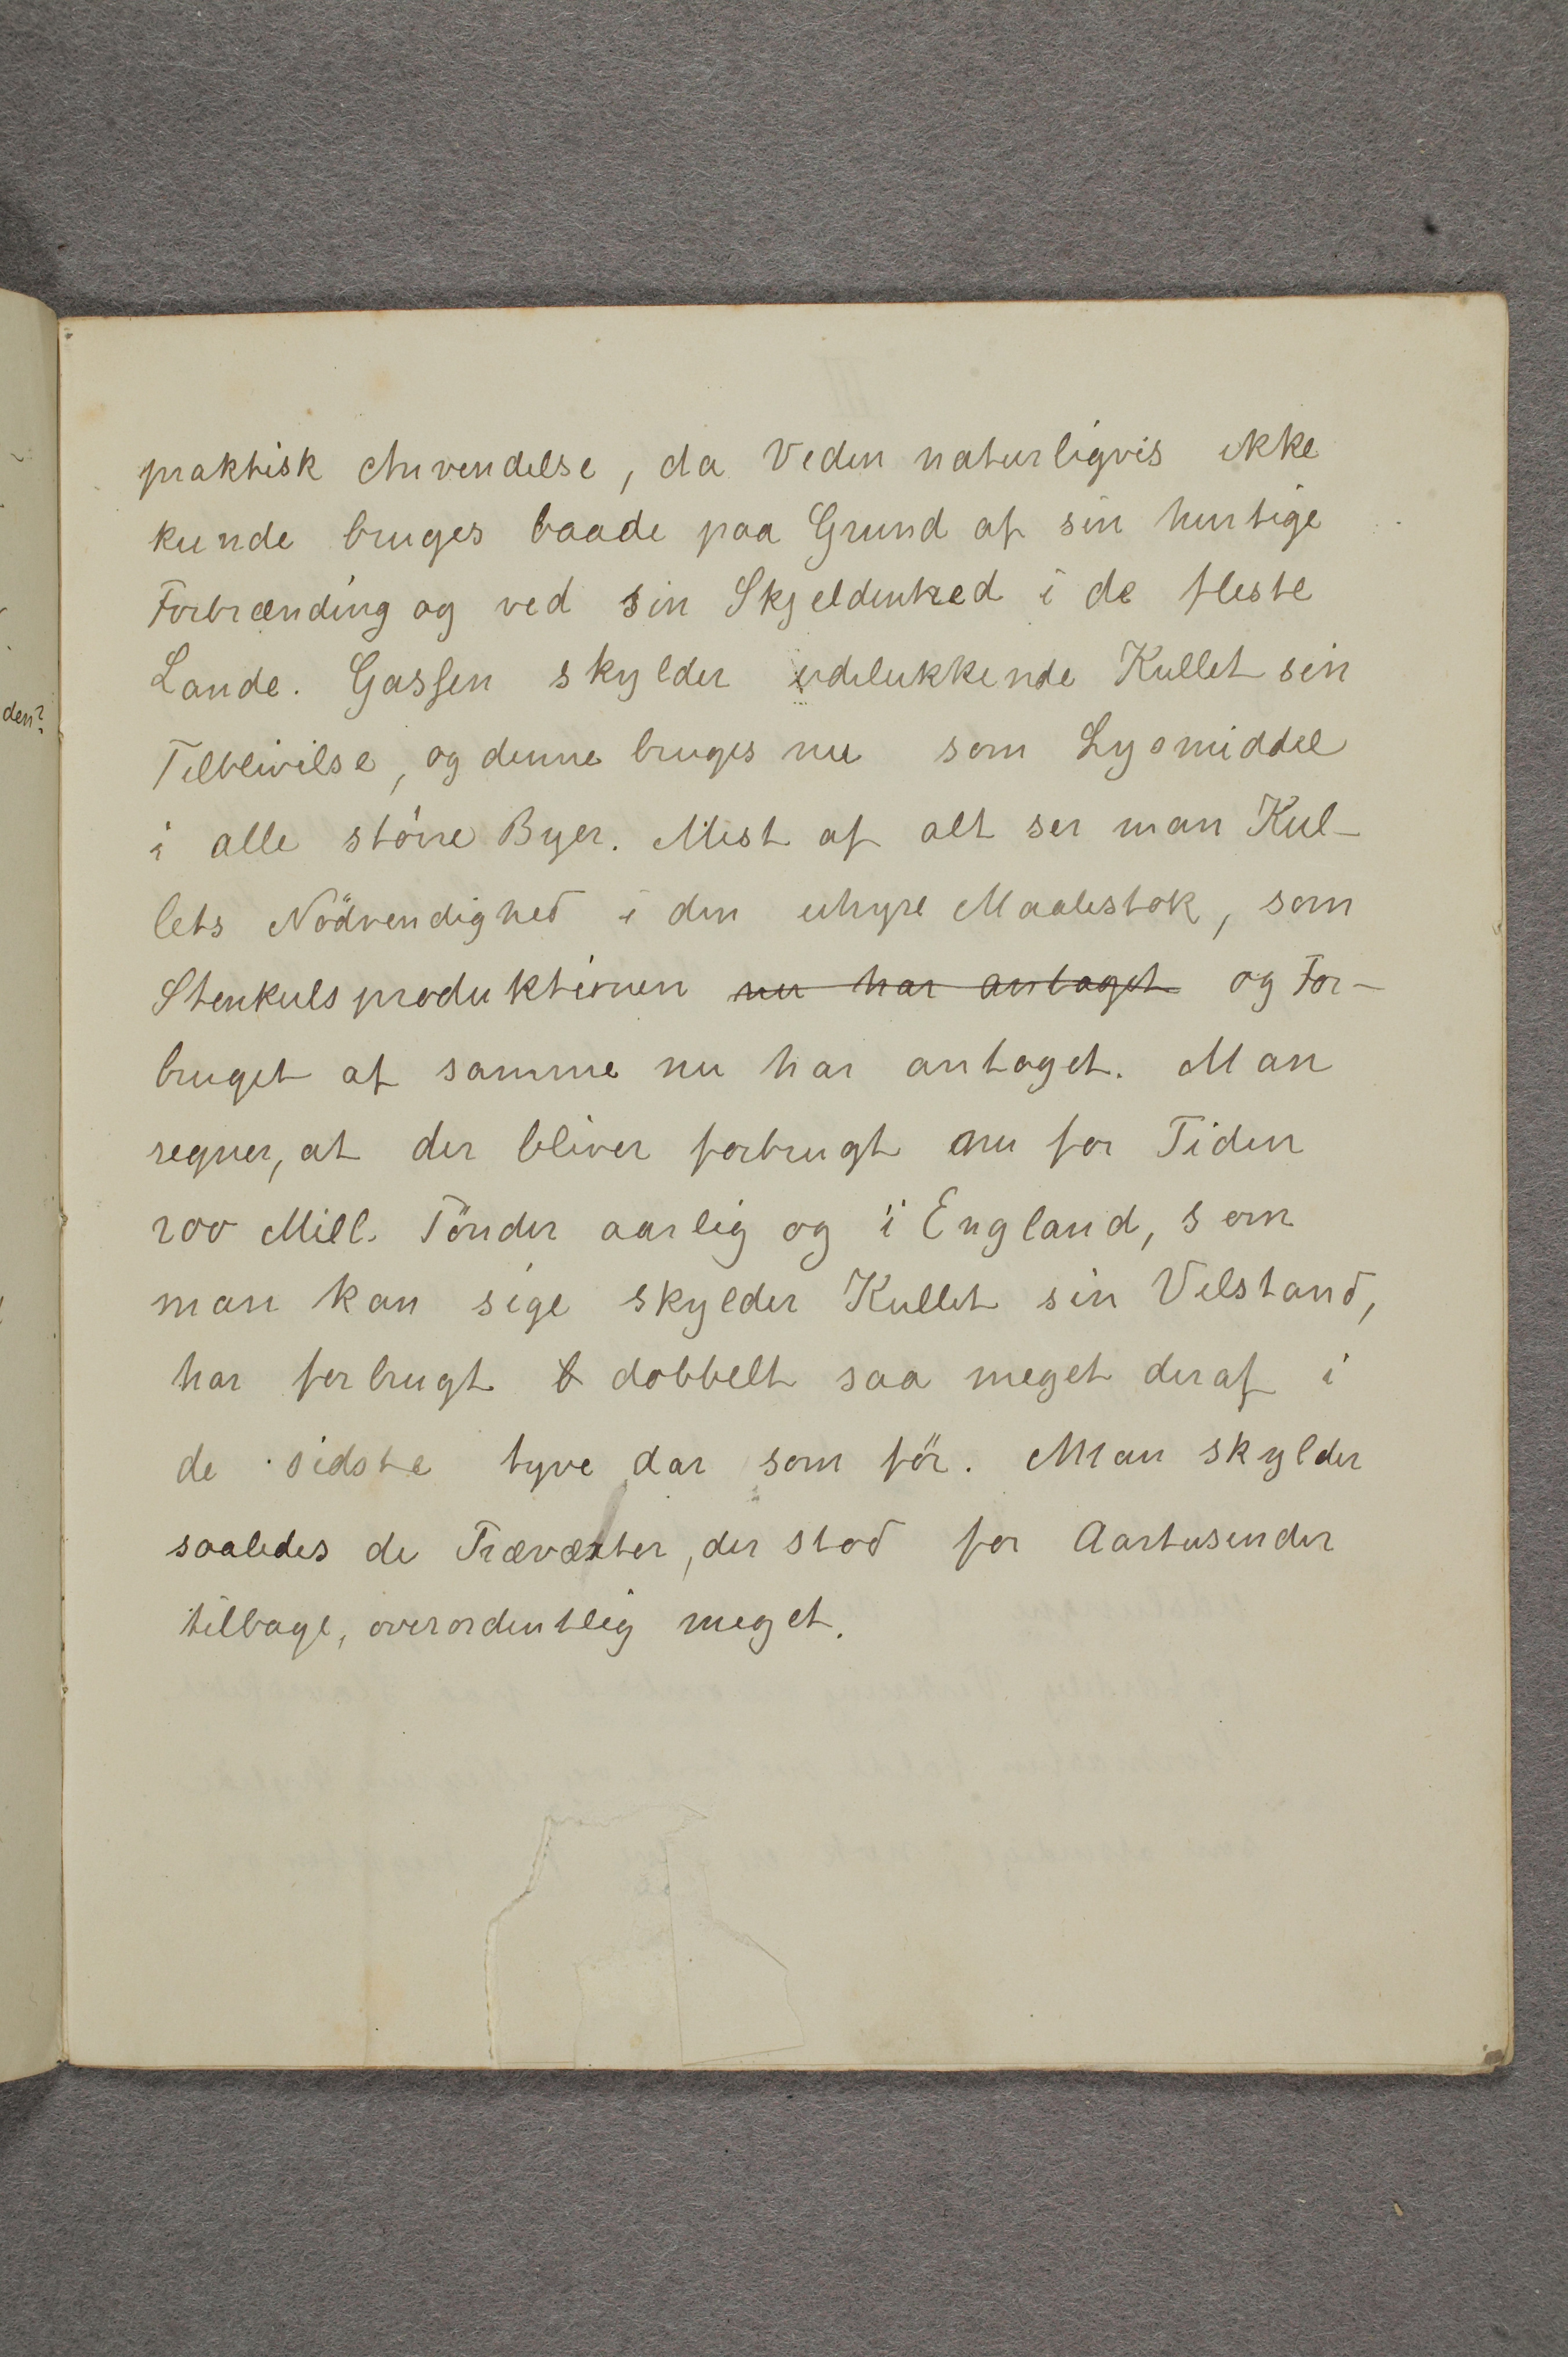 praktisk Anvendelse, da Veden naturligvis ikke
kunde bruges baade paa Grund af sin hurtige
Forbrænding og ved sin Skjeldenhed i de fleste
Lande. Gassen skylder udelukkende Kullet sin
Tilblivilse, og denne bruges nu som Lysmiddel
i alle större Byer. Mest af alt ser man Kul-
lets Nödvendighed i den uhyre Maalestok, som
Stenkulsproduktionen nu har antaget og For-
bruget af samme nu har antaget. Man
regner, at der bliver forbrugt nu for Tiden
200 Mill. Tönder aarlig og i England, som
man kan sige skylder Kullet sin Velstand,
har forbrugt dobbelt saa meget deraf i
de sidste tyve Aar som för. Man skylder
saaledes de Trævæxter, der stod for Aartusender
tilbage, overordentlig meget.
den?